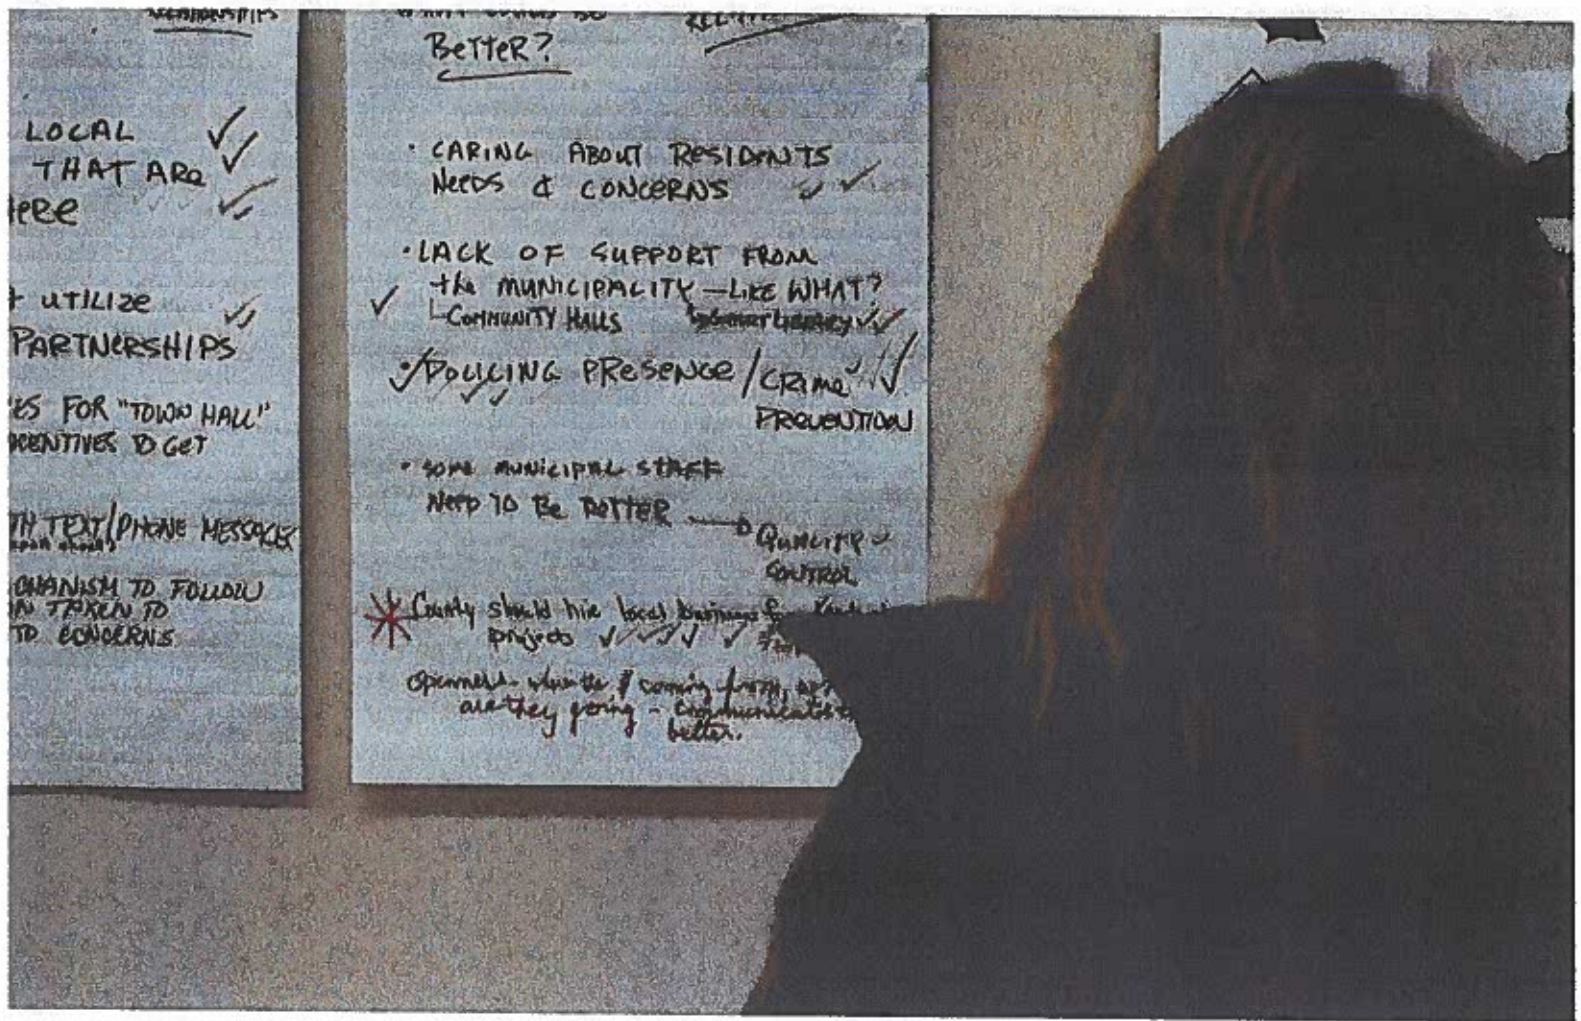 RELATIONSHIPS
LOCAL
THAT ARe
HeRe
+ UTILIZe
PARTNeRSHIPS
ES FOR "TOWN HALL"
INCENTIVES TO GET
TH TEXT/PHONE MESSAGES
CHANISM TO FOLLOW
N TAKEN TO
TO CONCERNS
WHAT COULD BE
BeTTeR?
• CARING ABOUT ReSIDeNTS
NeeDS & CONCeRNS
• LACK OF SUPPORT FROM
the MUNICIPALITY — LIKE WHAT?
COMMUNITY HALLS
• POLICING PReSeNCe / CRime
PReVeNTION
• SOMe MUNICIPAL STAFF
NeeD TO Be BeTTeR → QUALITY
CONTROL
County should hire local business for
projects
Openness - where the $ coming from,
are they going - communicates
better.